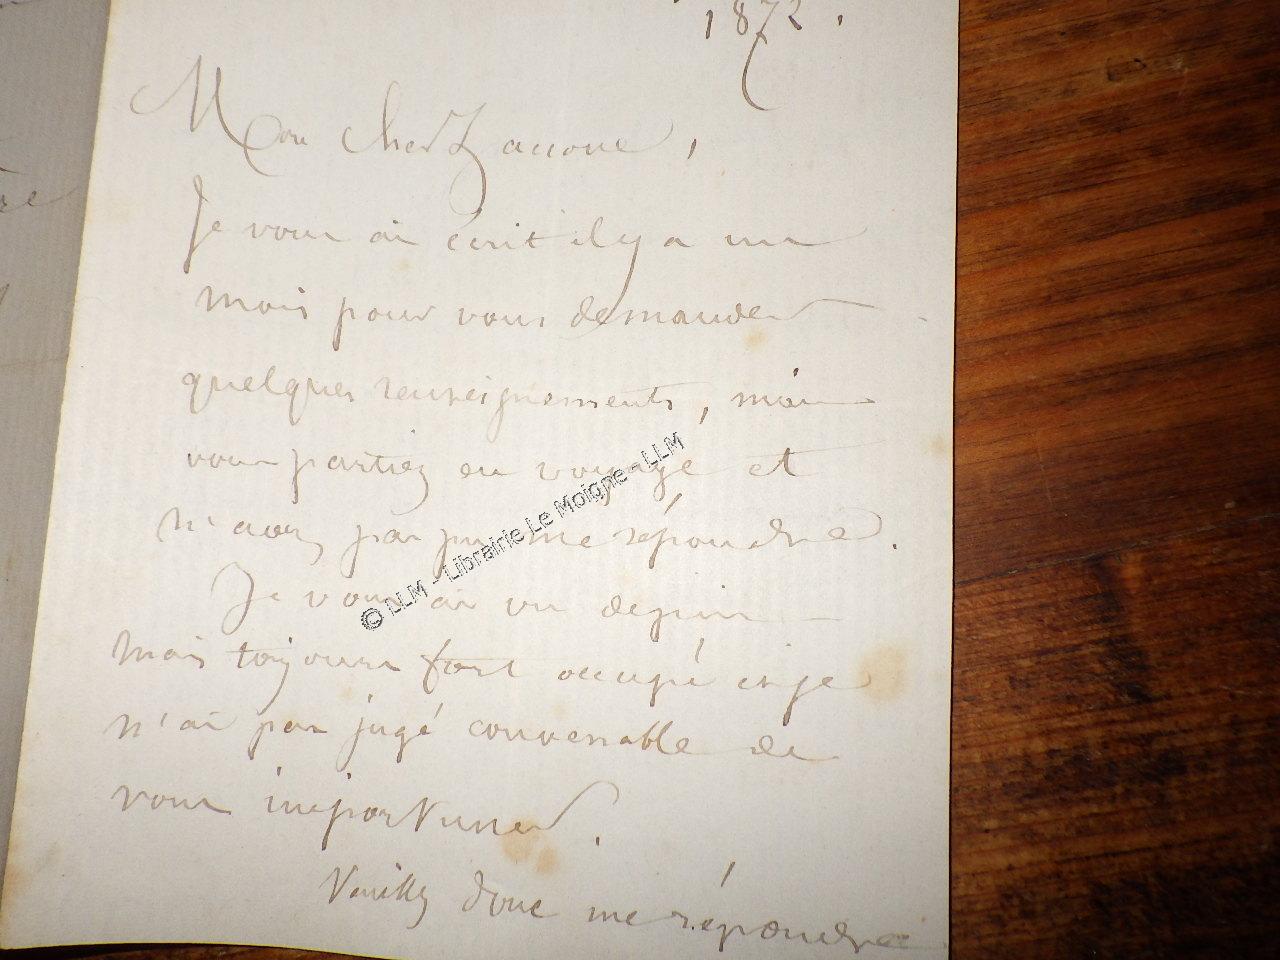 1872.
Mon cher Zaccone,
Je vous ai écrit il y a un
mois pour vous demander
quelques renseignements, mais
vous partiez en voyage et
n'avez pas pu me répondre.
Je vous ai vu depuis
mais toujours fort occupé et je
n'ai pas jugé convenable de
vous importuner.
Veuillez donc me répondre
© LLM - Librairie Le Moigne - LLM